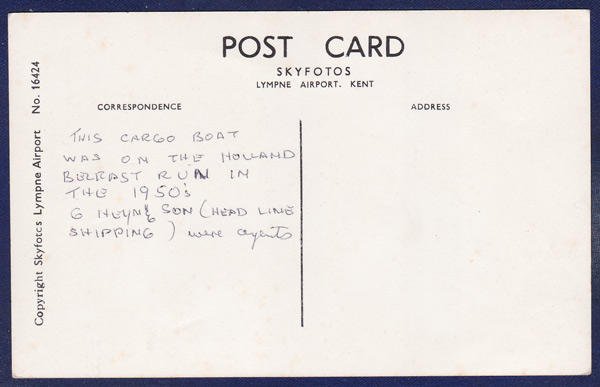 POST CARD
SKYFOTOS
LYMPNE AIRPORT. KENT
CORRESPONDENCE
ADDRESS
THIS CARGO BOAT
WAS ON THE HOLLAND
BELFAST RUN IN
THE 1950's
G HEYN & SON (HEAD LINE
SHIPPING) were agents
Copyright Skyfotos Lympne Airport No. 16424